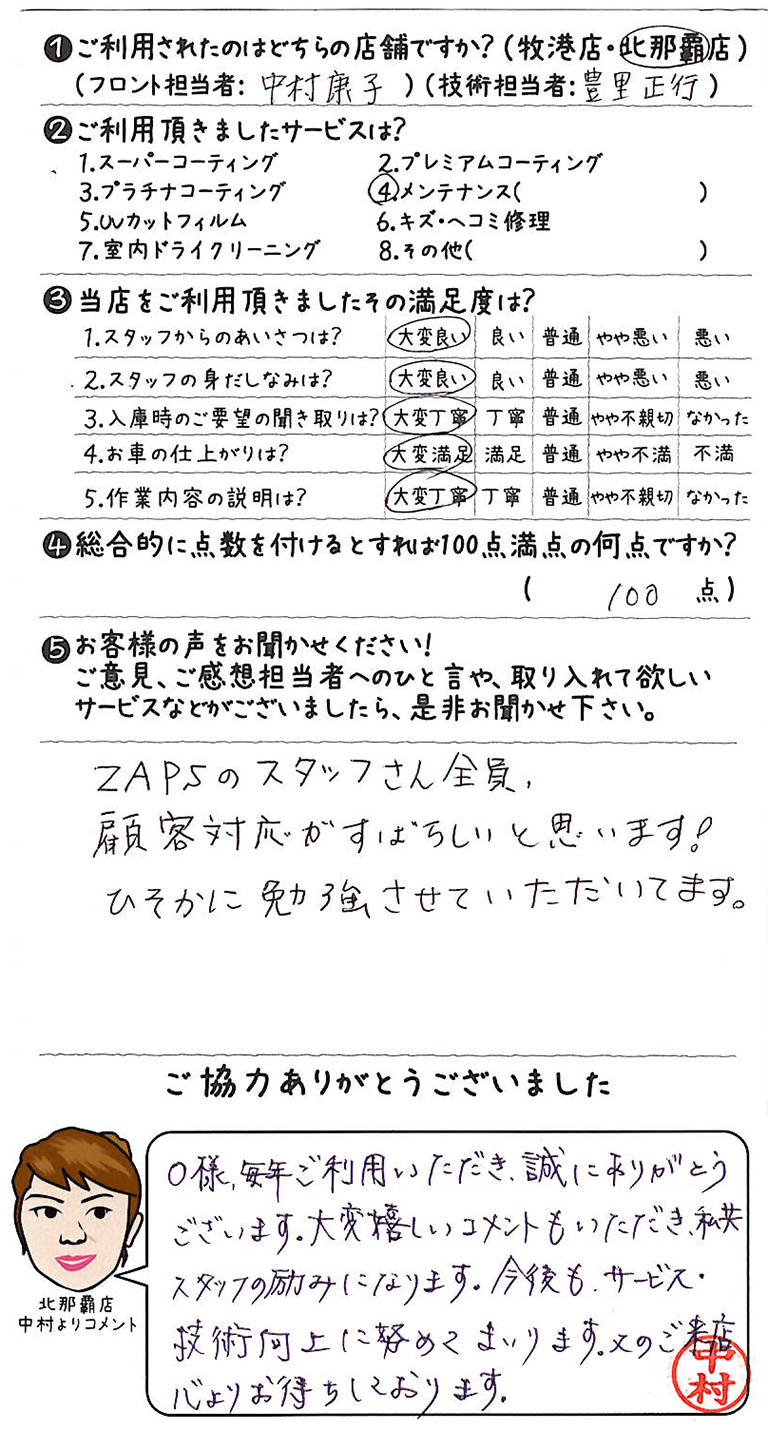 ❶ご利用されたのはどちらの店舗ですか?(牧港店・北那覇店)
(フロント担当者: 中村康子 )(技術担当者:豊里正行 )
❷ご利用頂きましたサービスは?
1.スーパーコーティング 2.プレミアムコーティング
3.プラチナコーティング 4.メンテナンス( )
5.UVカットフィルム 6.キズ・ヘコミ修理
7.室内ドライクリーニング 8.その他( )
❸当店をご利用頂きましたその満足度は?
1.スタッフからのあいさつは? 大変良い 良い 普通 やや悪い 悪い
2.スタッフの身だしなみは? 大変良い 良い 普通 やや悪い 悪い
3.入庫時のご要望の聞き取りは? 大変丁寧 丁寧 普通 やや不親切 なかった
4.お車の仕上がりは? 大変満足 満足 普通 やや不満 不満
5.作業内容の説明は? 大変丁寧 丁寧 普通 やや不親切 なかった
❹総合的に点数を付けるとすれば100点満点の何点ですか?
( 100 点)
❺お客様の声をお聞かせください!
ご意見、ご感想担当者へのひと言や、取り入れて欲しい
サービスなどがございましたら、是非お聞かせ下さい。
ZAPSのスタッフさん全員、
顧客対応がすばらしいと思います!
ひそかに勉強させていただいてます。
ご協力ありがとうございました
O様、毎年ご利用いただき、誠にありがとう
ございます。大変嬉しいコメントもいただき、私共
スタッフの励みになります。今後も、サービス・
技術向上に努めてまいります。又のご来店
心よりお待ちしております。
中村
北那覇店
中村よりコメント